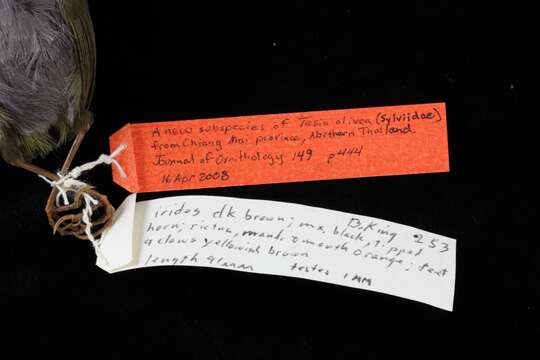 A new subspecies of Tesia olivea (Sylviidae)
from Chiang Mai province, Northern Thailand
Journal of Ornithology 149 p444
16 Apr 2008
B. King 253
irides dk brown; mx, black, tipped
horn; rictus, mand. & mouth orange; feet
& claws yellowish brown
length 91mm testes 1 MM